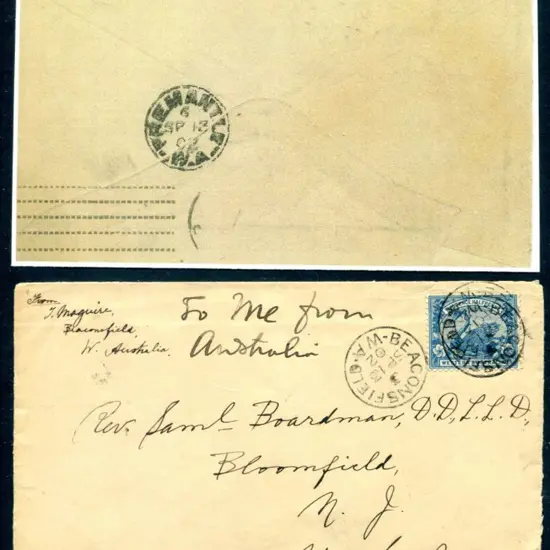 FREMANTLE
6
SP 13
02
W.A
From
T. Maguire,
Beaconsfield,
W. Australia.
To Me from
Australia
BEACONSFIELD.A.W-
BEACONSFIELD
Rev. Saml Boardman, D.D, L.L.D,
Bloomfield,
N. J.